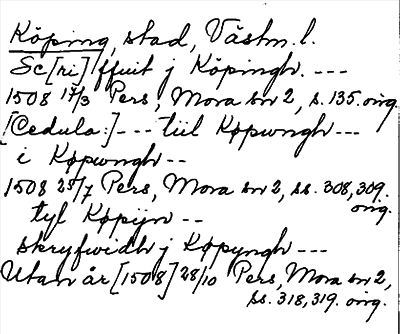 Köping, stad, Västm. l.
Sc[ri]ffuit j Köpingh. ---
1508 17/3 Pers, Mora nr 2, s. 135. orig.
[Cedula:] --- tiil Køpwngh ---
i Køpwngh --
1508 28/7 Pers, Mora nr 2, ss. 308, 309.
orig.
tyl Køpijn --
skryfwidh j Køpyngh ---
Utan år [1508] 28/10 Pers, Mora nr 2,
ss. 318, 319. orig.